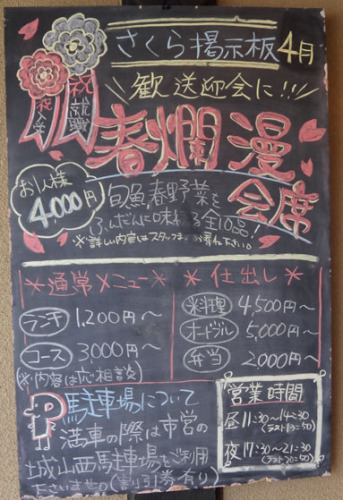 さくら掲示板 4月
祝就職
祝入学
\歓送迎会に!!!/
春爛漫
会席
お1人様
4,000円
旬魚、春野菜を
ふんだんに味わえる全10品!
※詳しい内容はスタッフまでお尋ね下さい。
*通常メニュー*
ランチ 1,200円~
コース 3000円~
(※内容は応相談)
*仕出し*
料理 4,500円~
オードブル 5,000円~
弁当 2000円~
P 駐車場について
満車の際は市営の
城山西駐車場をご利用
下さいませ。(割引券有り)
営業時間
昼 11:30~14:30
(ラスト13:50)
夜 17:30~21:30